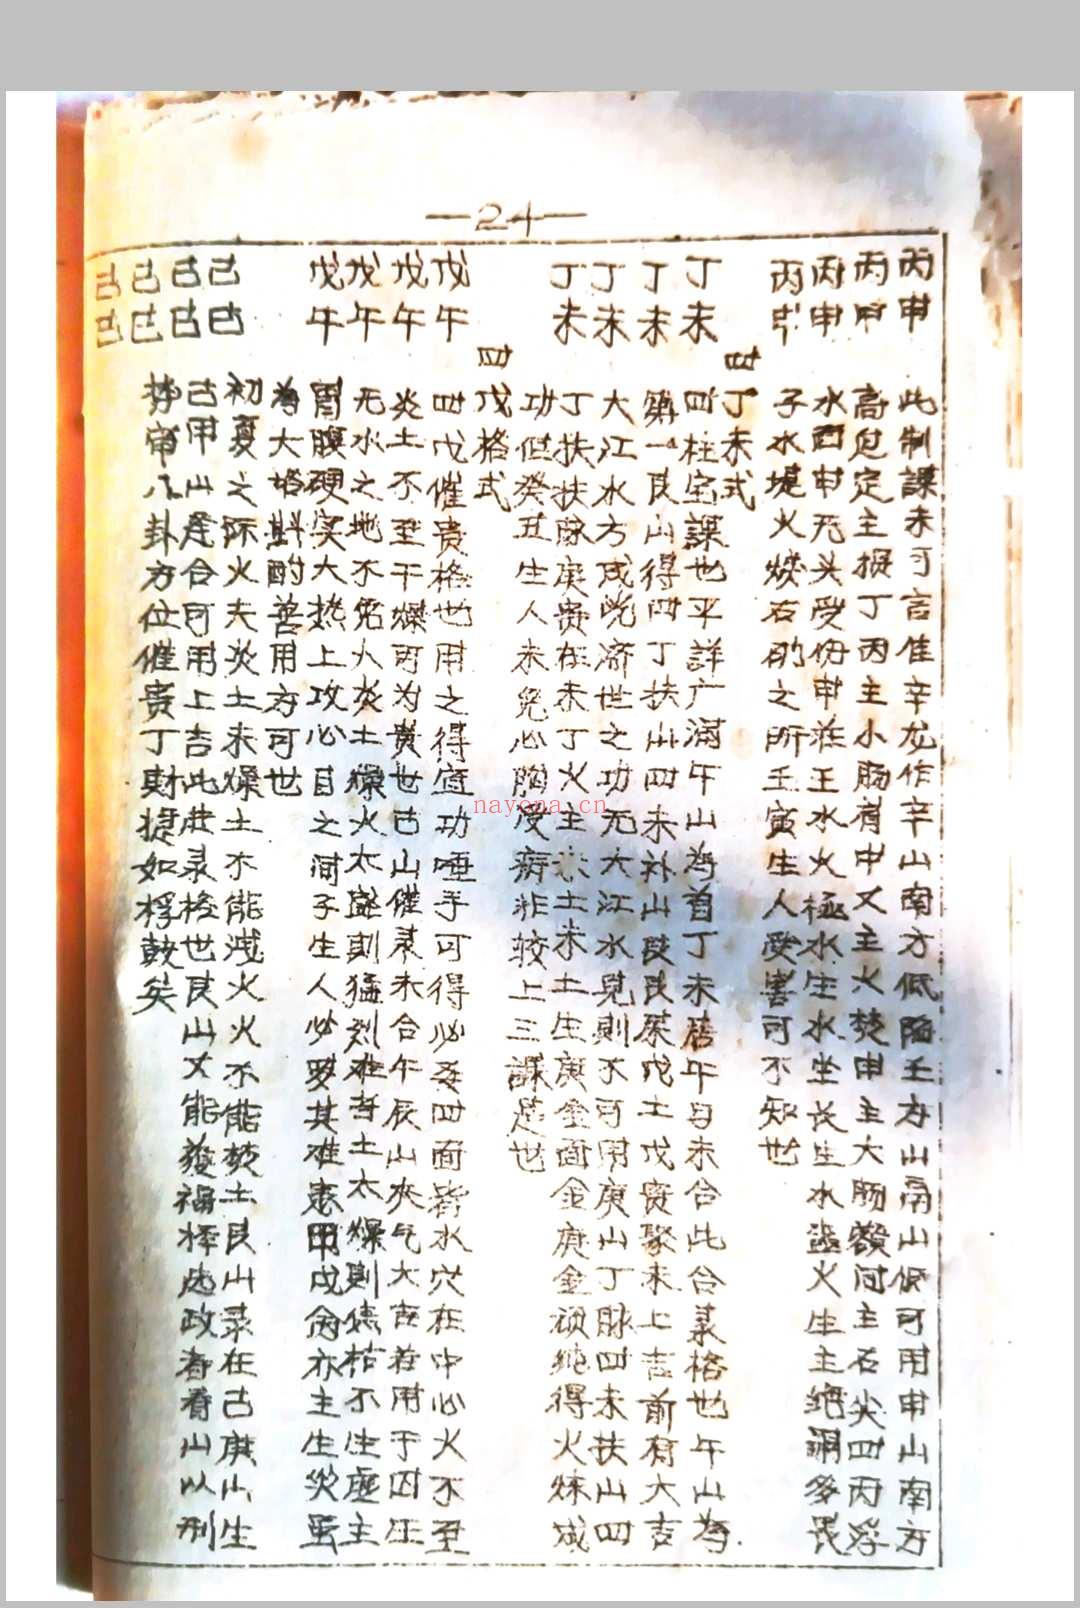 —24—
丙申 此制課未可言佳辛龙作辛山南方低陷壬方山高山低可用申山南方
丙申 高包定主損丁丙主小肠肖申又主火焚申主大肠额河主石尖四丙浮
丙申 水西申无头受伤申在王水火極水生水坐长生水遥火生主绝谓多畏
丙申 子水堤火焌石的之所壬寅生人受害可不知也
四丁未式
丁未 四柱宝課也平詳广滿午山為首丁未居午与未合此合录格也午山為
丁未 第一艮山得四丁扶山四未补山艮艮属戊土戊贵聚未上吉前有大吉
丁未 大江水方成晄濟世之功无大江水見則不可用庚山丁脉四未扶山四
丁未 丁扶扶脉庚贵在未丁火主未土未土生庚金面金庚金顽纯得火煉成
功但癸丑生人未免心胸受病非较上三課是也
四戊格式
戊午 四戊催贵格也用之得宜功唾手可得必要四面皆水穴在中心火不至
戊午 炎土不至干燥可为贵也己山催录未合午辰山夾气大吉若用于因
戊午 无水之地不免火炎土燥火太盛則猛烈难吞土太燥則枯不生虚主
戊午 胃腹硬实大热上攻心目之间子生人必罗其难患甲戊丙亦主生災虽
為大格斟酌善用方可也
己巳 初夏之际火夫炎土未燥土不能洩火火不能焚土艮山录在己庚山生
己巳 己甲山是合可用上吉此进录格也艮山又能發福择选政者看山以刑
己巳 挣帝八卦方位催贵丁財捷如桴鼓矣
己巳
nayona.cn